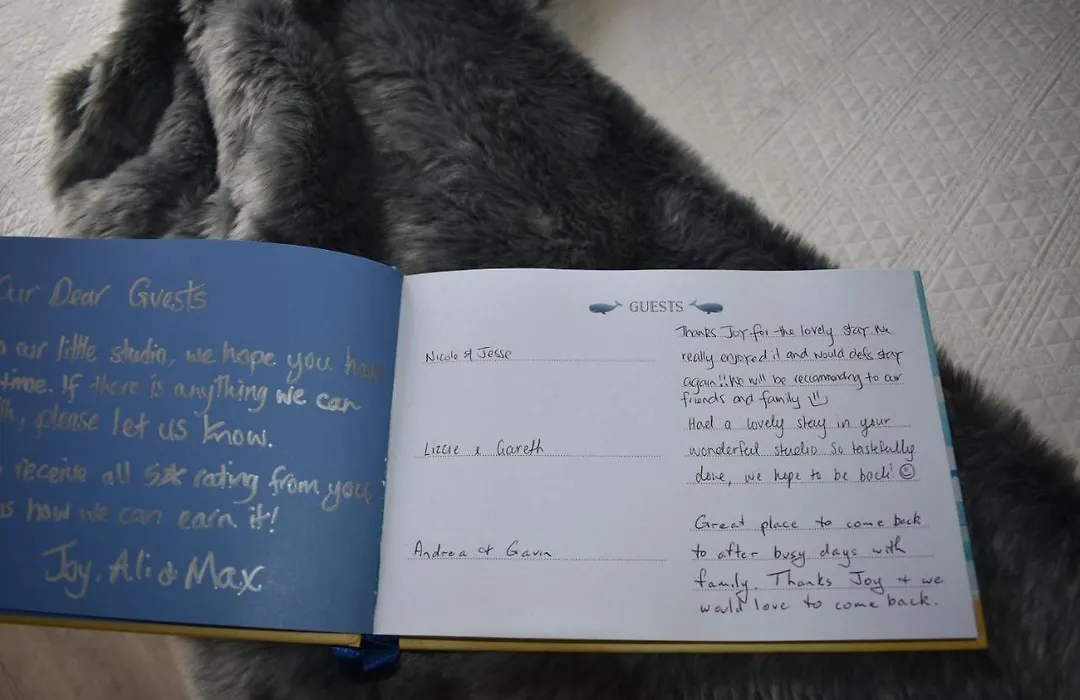 Our Dear Guests
our little studio, we hope you have
time. If there is anything we can
please let us know.
receive all 5★ rating from you
us how we can earn it!
Joy, Ali & Max
GUESTS
Nicole & Jesse
Thanks Joy for the lovely stay. We
really enjoyed it and would defs stay
again!! We will be reccomending to our
friends and family
Lizzie & Gareth
Had a lovely stay in your
wonderful studio so tastefully
done, we hope to be back! ☺
Andrea & Gavin
Great place to come back
to after busy days with
family. Thanks Joy + we
would love to come back.